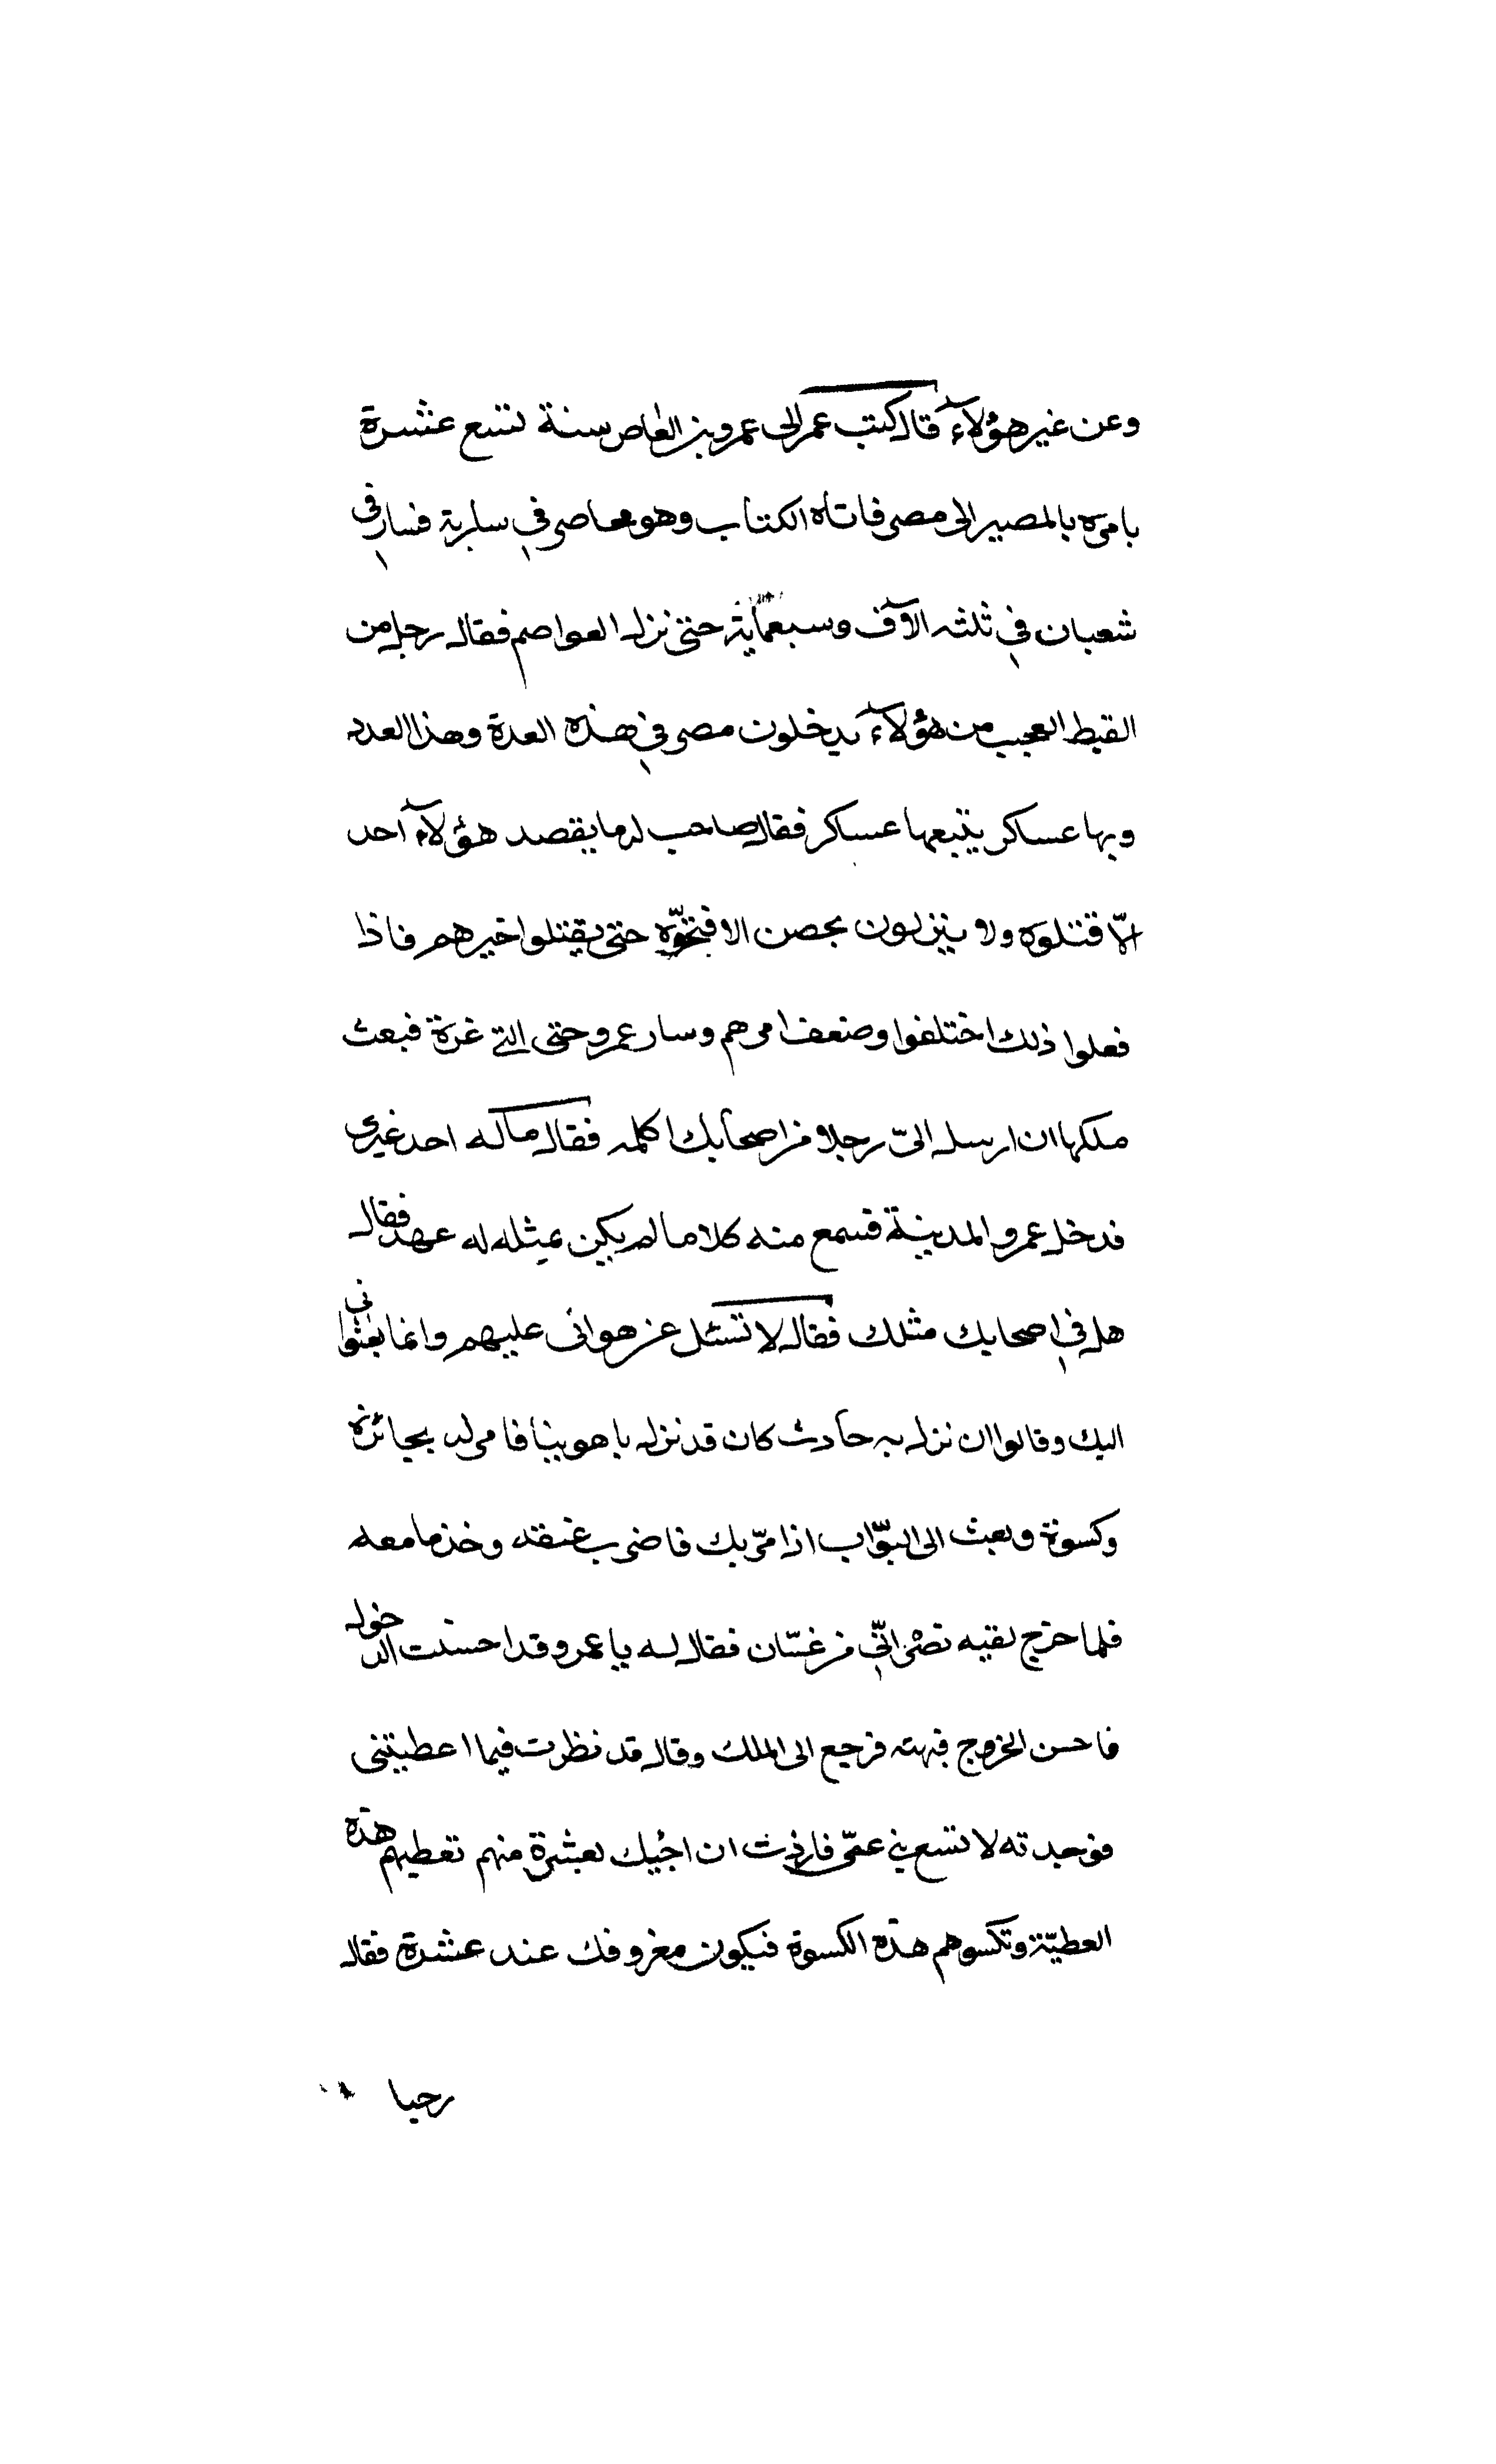 وعن غير هؤلآء قال كتب عمر الى عمرو بن العاص سنة تسع عشرة
بامره بالمصير الى مصر فاتاه الكتاب وهو محاصر في سارية فسار في
شعبان في ثلثه الآف وسبعماية حتى نزل العواصم فقال رجل من
القبط العجب من هؤلآء يدخلون مصر في هذه العدة وهذا العدد
وبها عساكر يتبعها عساكر فقال صاحب له ما يقصد هؤلآء احد
الّا قتلوه ولا ينزلون بحصن الا فتحوّه حتى يقتلوا خيرهم فاذا
فعلوا ذلك اختلفوا وضعف امرهم وسار عمرو حتى اتى غزة فبعث
ملكها ان ارسل الىّ رجلا من اصحابك اكلمه فقال ماله احد غيرى
فدخل عمرو المدينة فسمع منه كلاما لم يكن بمثله له عهد فقال
هل في اصحابك مثلك فقال لا تسئل عن هوانى عليهم وانما بعثوانى
اليك وقالوا ان نزل به حادث كان قد نزل باهو بينا فامر له بجائزة
وكسوة وبعث الى البوّاب اذا مرّ بك فاضرب عنقه وخذ ما معه
فلما خرج لقيه نصرانّي من غسّان فقال له يا عمرو قد احسنت الدخول
فاحسن الخروج فبهته فرجع الى الملك وقال قد نظرت فيما اعطيتنى
فوجدته لا تسع بني عمّى فاردت ان اجئيك بعشرة منهم تعطيهم هذه
العطيّة وتكسوهم هذه الكسوة فيكون معروفك عند عشرة فقال
رحبا